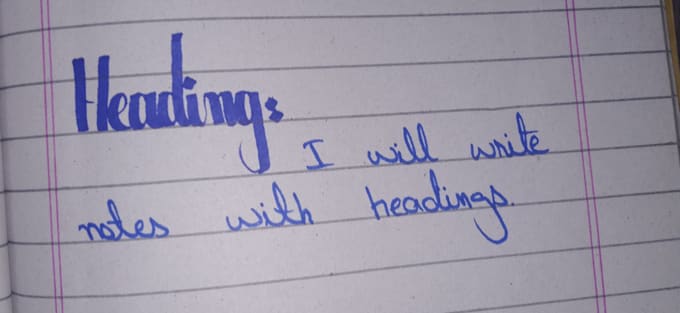 Heading:
I will write
notes with headings.